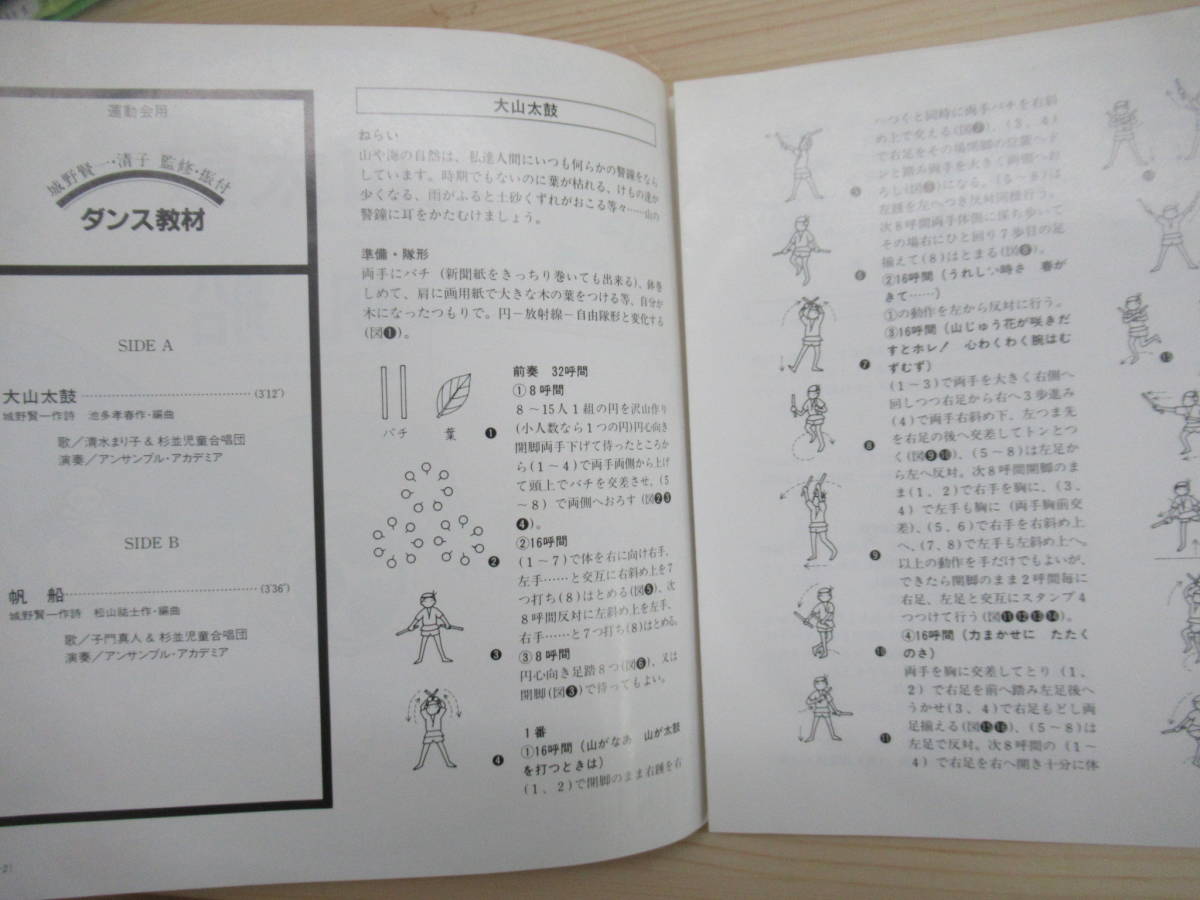 運動会用
城野賢一・清子 監修・振付
ダンス教材
SIDE A
大山太鼓 (3'12")
城野賢一作詩 池多孝春作・編曲
歌／清水まり子＆杉並児童合唱団
演奏／アンサンブル・アカデミア
SIDE B
帆船 (3'36")
城野賢一作詩 松山祐士作・編曲
歌／子門真人＆杉並児童合唱団
演奏／アンサンブル・アカデミア
大山太鼓
ねらい
山や海の自然は、私達人間にいつも何らかの警鐘をなら
しています。時期でもないのに葉が枯れる、けもの達が
少くなる、雨がふると土砂くずれがおこる等々……山の
警鐘に耳をかたむけましょう。
準備・隊形
両手にバチ（新聞紙をきっちり巻いても出来る）、鉢巻き
しめて、肩に画用紙で大きな木の葉をつける等、自分が
木になったつもりで。円－放射線－自由隊形と変化する
(図❶)。
バチ 葉 ❶
❷
❸
❹
前奏 32呼間
①8呼間
8～15人1組の円を沢山作り
(小人数なら1つの円)円心向き
開脚両手下げて待ったところか
ら(1～4)で両手両側から上げ
て頭上でバチを交差させ、(5
～8)で両側へおろす(図❷❸
❹)。
②16呼間
(1～7)で体を右に向け右手、
左手……と交互に右斜め上を7
つ打ち(8)はとめる(図❺)、次
8呼間反対に左斜め上を左手、
右手……と7つ打ち(8)はとめる。
③8呼間
円心向き足踏8つ(図❻)、又は
開脚(図❸)で待ってもよい。
1番
①16呼間（山がなあ 山が太鼓
を打つときは）
(1、2)で開脚のまま右踵を右
へつくと同時に両手バチを右斜
め上で交える(図❼)、(3、4)
で右足をその場開脚の位置へド
ンと踏み両手を大きく両側へお
ろし(図❽)になる。(5～8)は
左踵を左へつき反対同様行う。
次8呼間両手体側に保ち歩いて
その場右にひと回り7歩目の足
揃えて(8)はとまる(図❻)。
②16呼間（うれしい時さ 春が
きて……）
①の動作を左から反対に行う。
③16呼間（山じゅう花が咲きだ
すとホレ！ 心わくわく腕はむ
ずむず）
(1～3)で両手を大きく右側へ
回しつつ右足から右へ3歩進み
(4)で両手右斜め下、左つま先
を右足の後へ交差してトンとつ
く(図❾❿)、(5～8)は左足か
ら左へ反対。次8呼間開脚のま
ま(1、2)で右手を胸に、(3、
4)で左手も胸に（両手胸前交
差)、(5、6)で右手を右斜め上
へ、(7、8)で左手も左斜め上へ。
以上の動作を手だけでもよいが、
できたら開脚のまま2呼間毎に
右足、左足と交互にスタンプ4
つつけて行う(図⓫⓬⓭⓮)。
④16呼間（力まかせに たたく
のさ）
両手を胸に交差してとり(1、
2)で右足を前へ踏み左足後へ
うかせ(3、4)で右足もどし両
足揃える(図⓯⓰)、(5～8)は
左足で反対。次8呼間の(1～
4)で右足を右へ開き十分に体
❺
❻
❼
❽
❾
❿
⓫